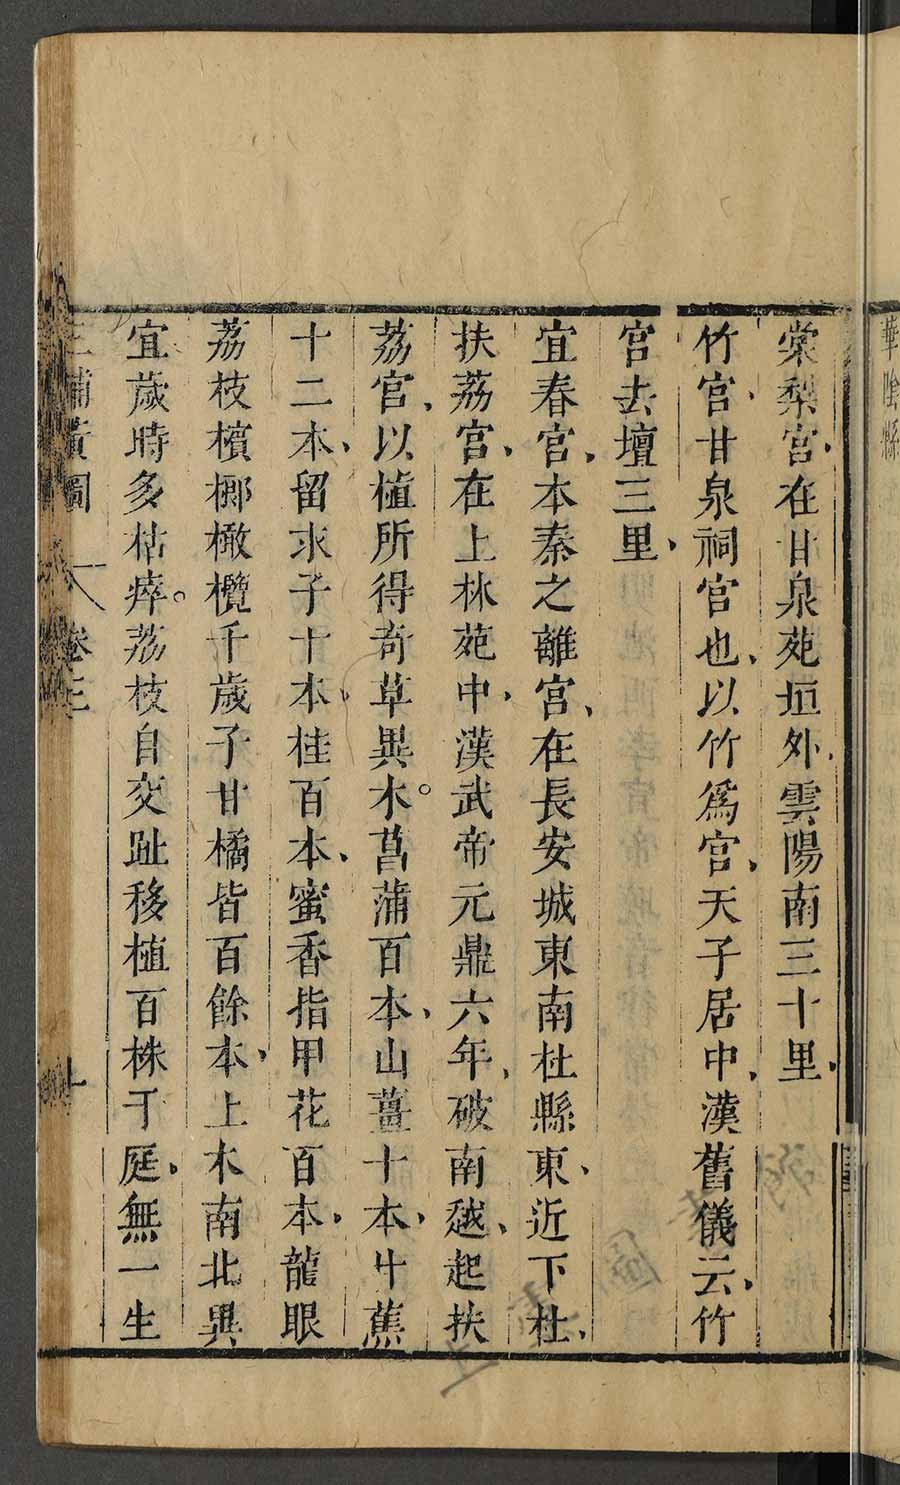 華陰縣
棠梨宮在甘泉苑垣外雲陽南三十里
竹宮甘泉祠宮也以竹爲宮天子居中漢舊儀云竹
宮去壇三里
宜春宮本秦之離宮在長安城東南杜縣東近下杜
扶荔宮在上林苑中漢武帝元鼎六年破南越起扶
荔宮以植所得奇草異木。菖蒲百本山薑十本甘蕉
十二本留求子十本桂百本蜜香指甲花百本龍眼
荔枝檳榔橄欖千歲子甘橘皆百餘本上木南北異
宜歲時多枯瘁。荔枝自交趾移植百株于庭無一生
三輔黃圖 卷三 十